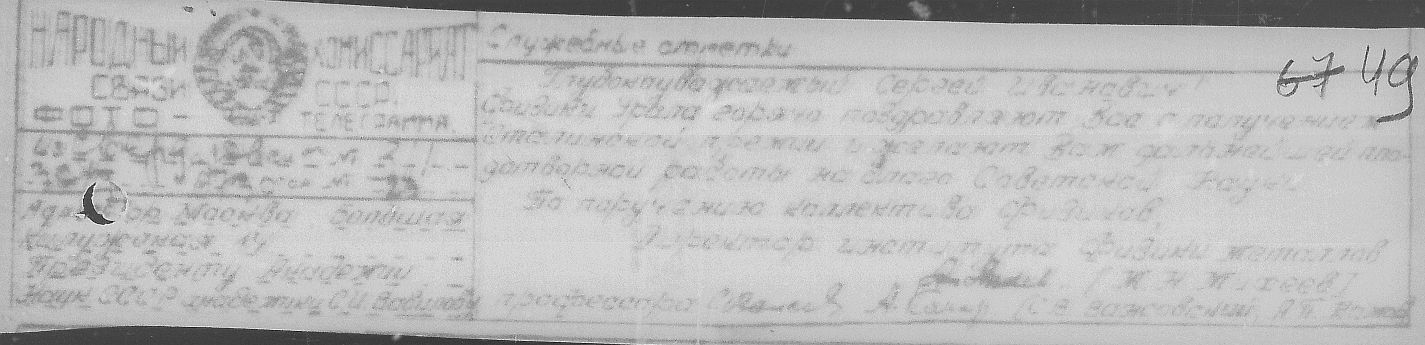 НАРОДНЫЙ КОМИССАРИАТ
СВЯЗИ СССР.
ФОТО - ТЕЛЕГРАММА.
Адрес Москва Большая
Калужская 14
Президенту Академии
Наук СССР академику С.И. Вавилову
Служебные отметки
67 49
Глубокоуважаемый Сергей Иванович!
Физики Урала горячо поздравляют Вас с получением
Сталинской премии и желают Вам дальнейшей пло-
дотворной работы на благо Советской Науки
По поручению коллектива физиков,
Директор института Физики металлов
(М Н Михеев)
профессора (С В Вонсовский, А П Комар)